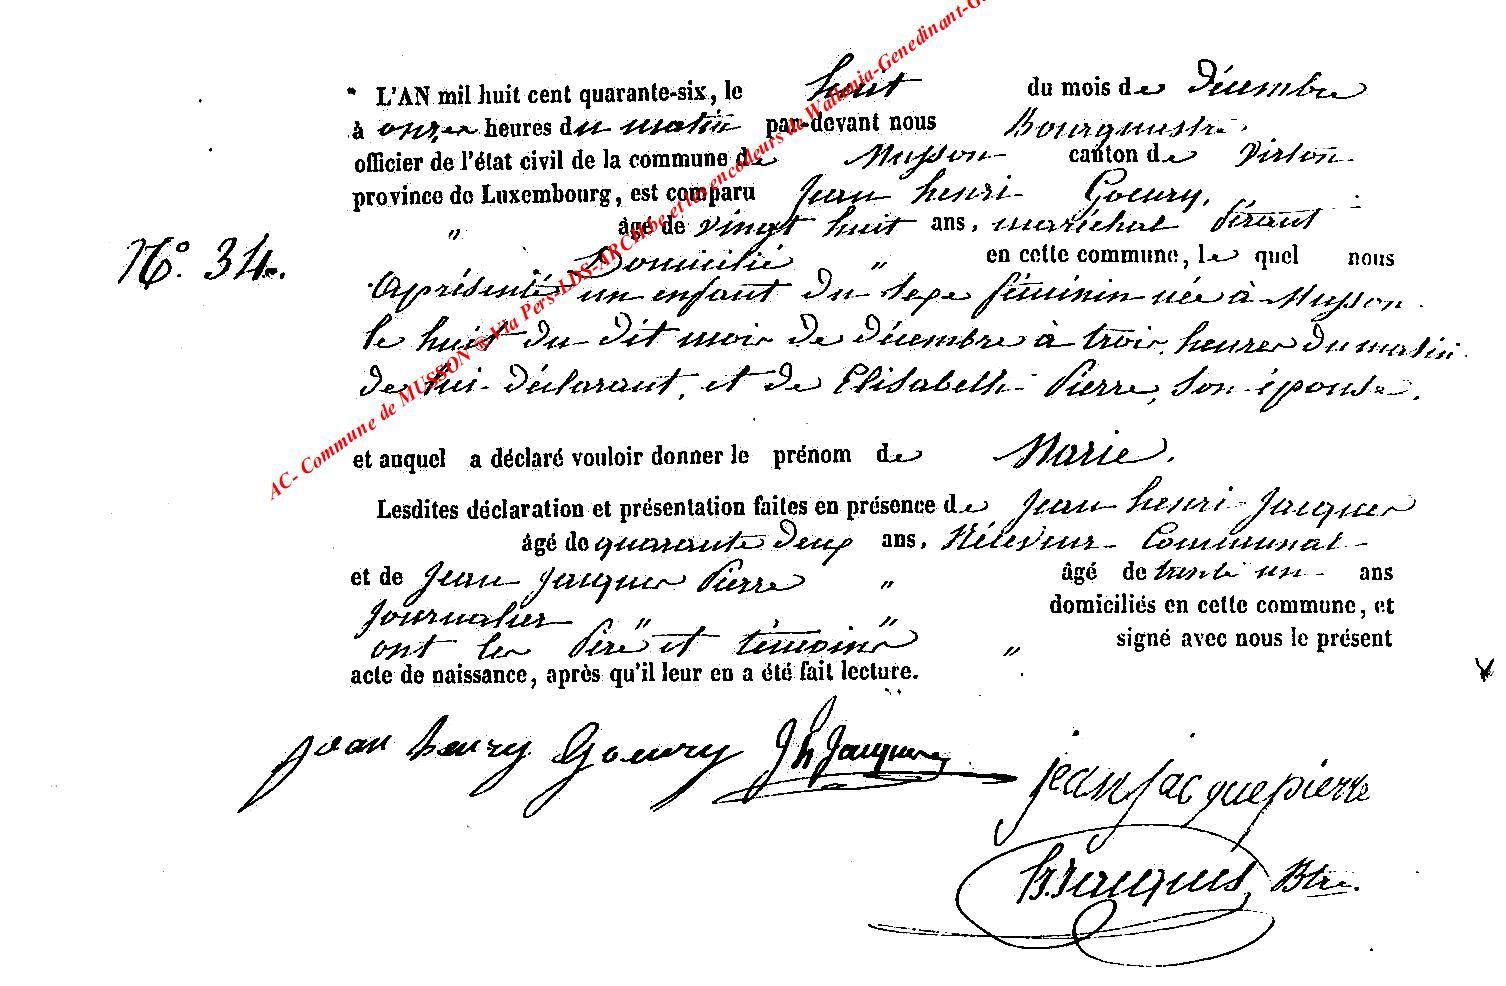 AC- Commune de MUSSON @ Via Pers-LDS-ARCH.be et les encodeurs de Wallonia-Genedinant-G
L'AN mil huit cent quarante-six, le huit du mois de Décembre
à onze heures du matin par-devant nous Bourgmestre.
officier de l'état civil de la commune de Musson canton de Virton
province de Luxembourg, est comparu Jean henri Goeury,
" âgé de vingt huit ans, maréchal férant
Domicilié " en cette commune, le quel nous
N.° 34.
a présenté un enfant du sexe féminin née à Musson
le huit du dit mois de décembre à trois heures du matin
de lui déclarant, et de Elisabeth Pierre, son épouse.
et auquel a déclaré vouloir donner le prénom de Marie.
Lesdites déclaration et présentation faites en présence de Jean henri Jacques
âgé de quarante deux ans, Réceveur Communal
et de Jean Jacques Pierre " âgé de trente un ans
Journalier " " domiciliés en cette commune, et
ont les Père et témoins " signé avec nous le présent
acte de naissance, après qu'il leur en a été fait lecture.
jean henry Goeury J h Jacques
jean jacque pierre
Jacques, Btre.